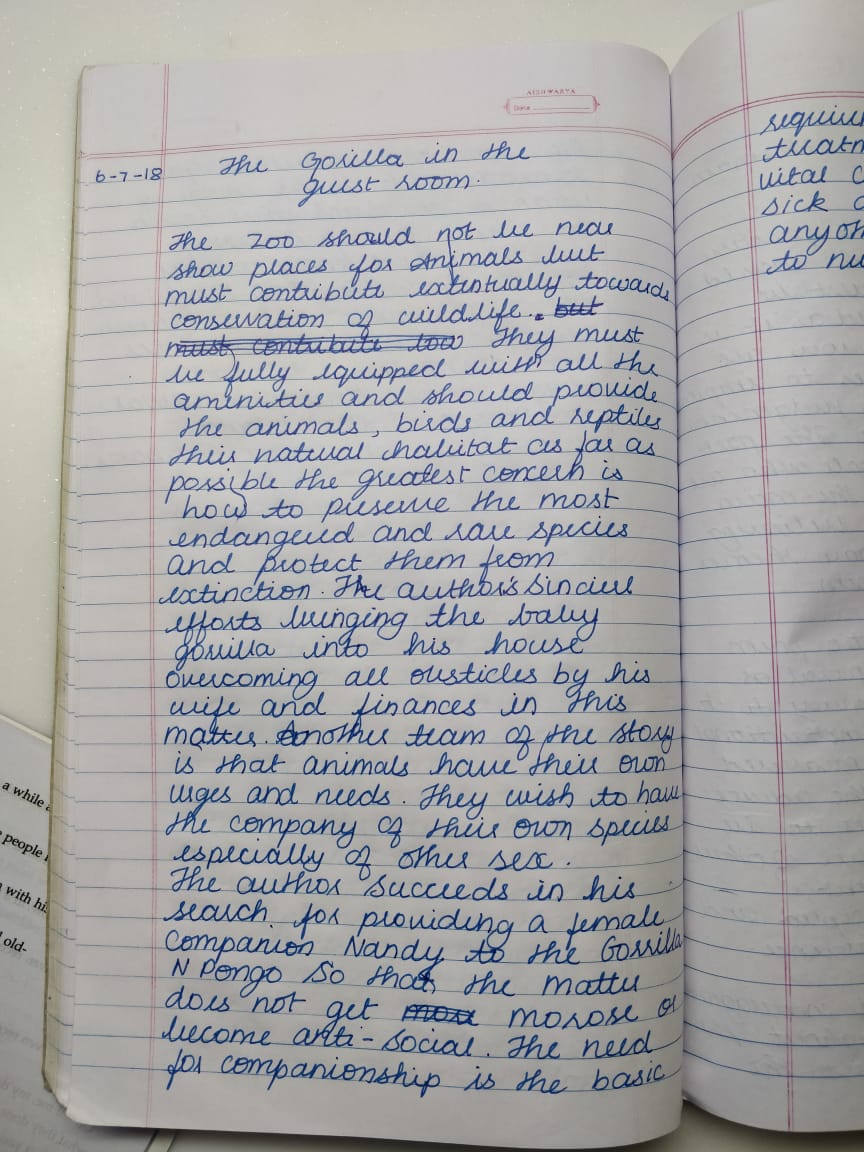 AISHWARYA
Date
6-7-18
The Gorilla in the
guest room.
The Zoo should not be near
show places for animals but
must contribute extentually towards
conservation of wildlife. but
must contribute tow They must
be fully equipped with all the
aminities and should provide
the animals, birds and reptiles
their natural habitat as far as
possible the greatest concern is
how to preserve the most
endangered and rare species
and protect them from
extinction. The author's sincere
efforts bringing the baby
gorilla into his house
overcoming all obsticles by his
wife and finances in this
matter. Another team of the story
is that animals have their own
urges and needs. They wish to have
the company of their own species
especially of other sex.
The author succeeds in his
search for providing a female
companion Nandy to the Gorrilla
N Pongo So that the matter
does not get more morose or
become anti-social. The need
for companionship is the basic
requir
treatm
vital c
sick
anyon
to nu
a while
people
with his
old-